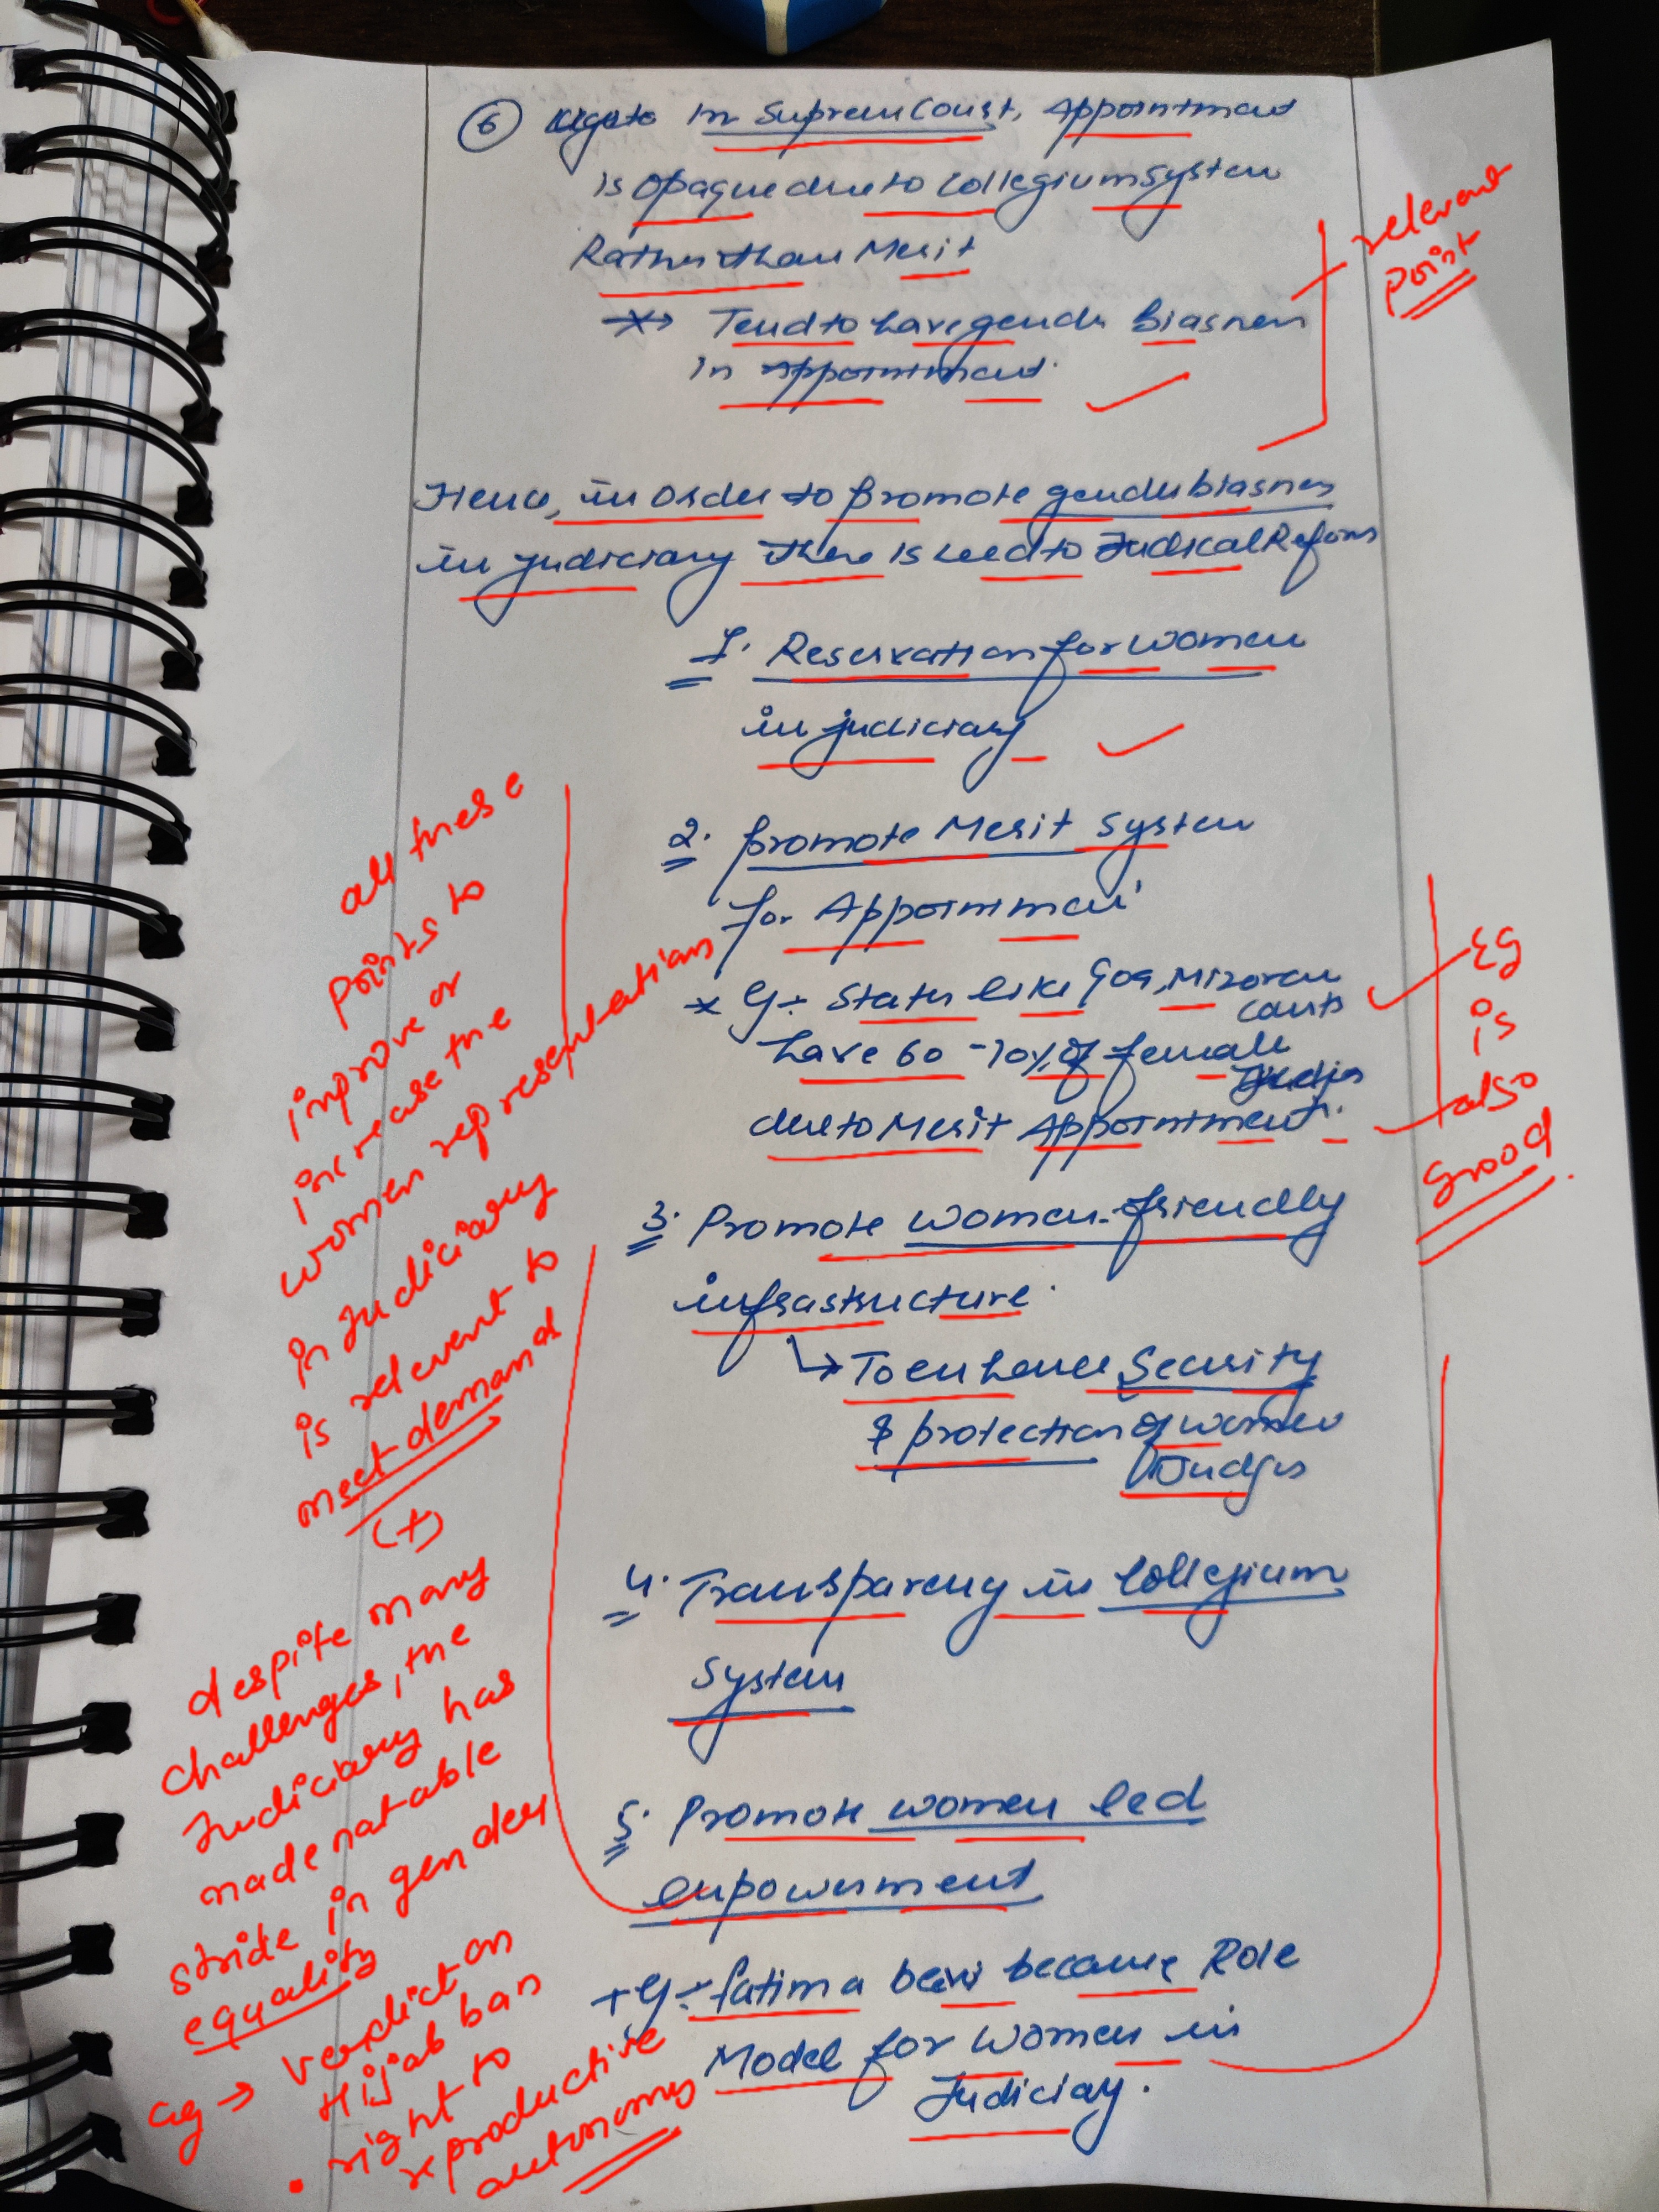 6 In Supreme Court, Appointment
is opaque due to collegium system
Rather than Merit
Tend to have gender biasness
in appointment.
relevant
point
Hence, in order to promote gender biasness
in judiciary there is need to Judical Reforms
1. Reservation for women
in judiciary
2. promote Merit system
for Appointment
* Eg:- States like Goa, Mizoram
courts
have 60-70% of female
Judges
due to Merit Appointment.
Eg
is
also
good
3. Promote women-friendly
infrastructure.
↳ To enhance Security
& protection of women
Judges
4. Transparency in Collegium
System
5. Promote women led
empowerment
Eg:- fatima beevi became Role
Model for women in
Judiciay.
all these
points to
improve or
increase the
women representations
in Judiciary
is relevent to
meet demand
(+)
despite many
challenges, the
Judiciary has
made notable
stride in gender
equality
eg → verdict on
Hijab ban
• right to
reproductive
autonomy